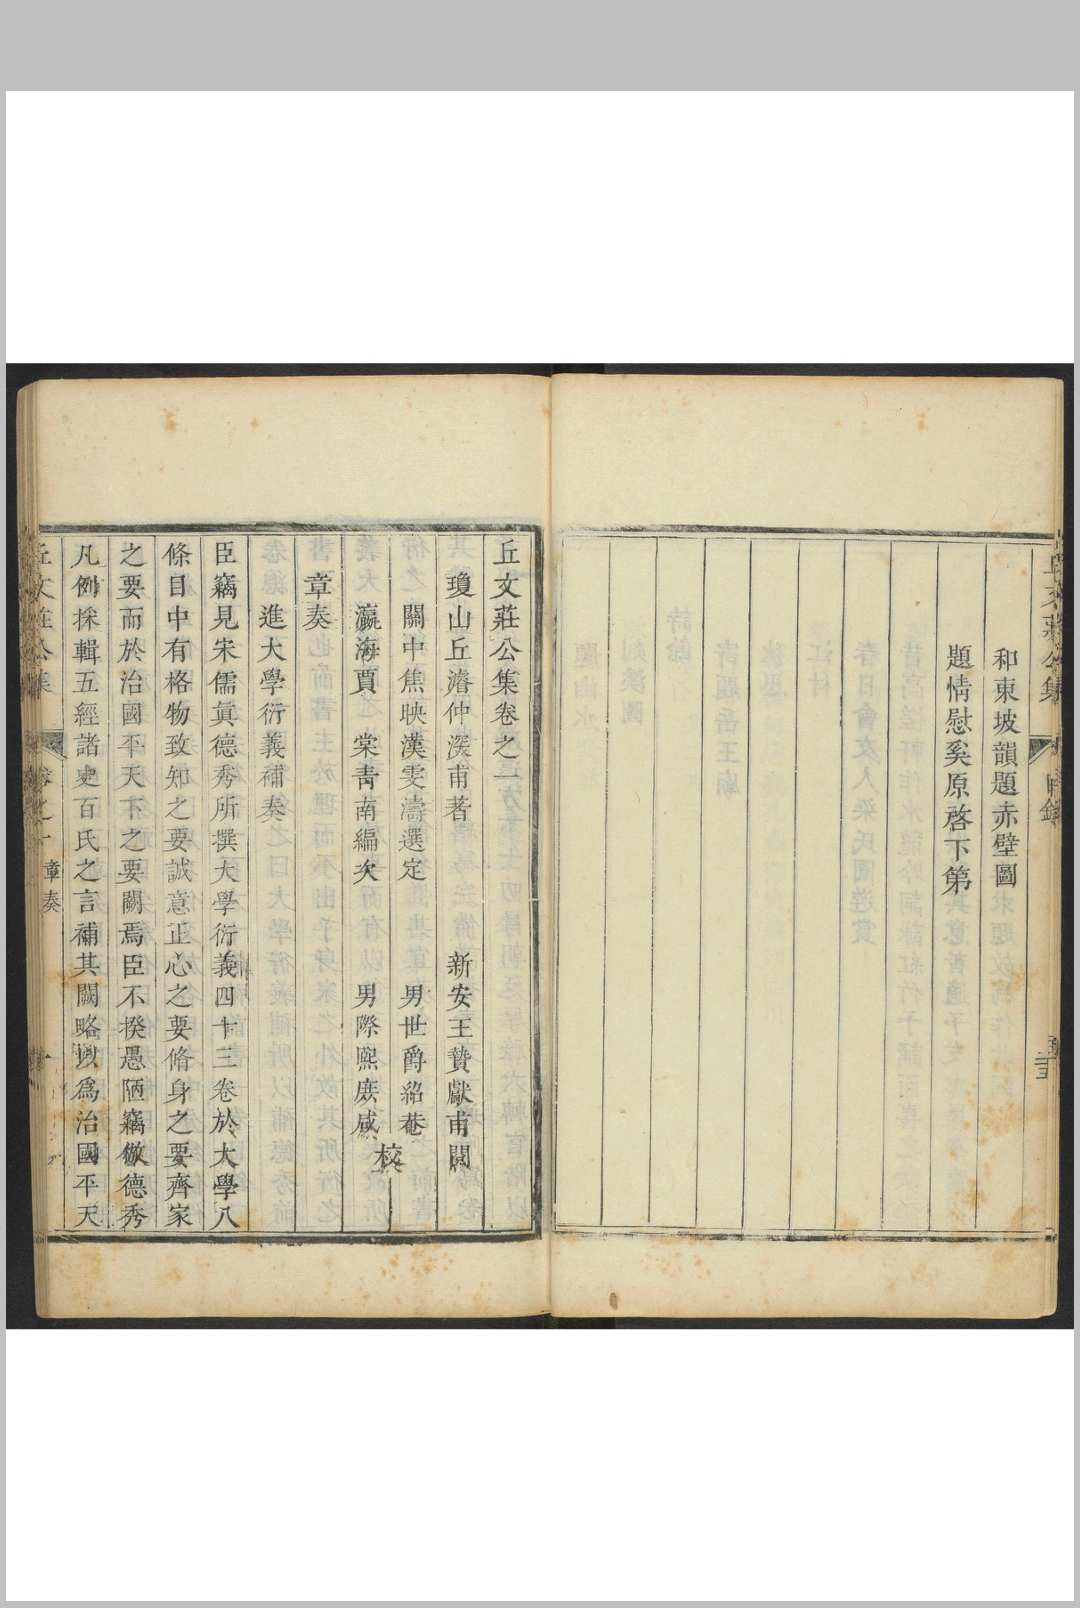 和東坡韻題赤壁圖
題情慰奚原啓下第
丘文莊公集卷之一
瓊山丘濬仲深甫著　新安王贄獻甫閱
關中焦映漢雯濤選定　男世爵紹菴
瀛海賈棠青南編次　男際熙庶咸
校
章奏
進大學衍義補奏
臣竊見宋儒眞德秀所撰大學衍義四十三卷於大學八
條目中有格物致知之要誠意正心之要脩身之要齊家
之要而於治國平天下之要闕焉臣不揆愚陋竊倣德秀
凡例採輯五經諸史百氏之言補其闕略以爲治國平天
丘文莊公集　卷之一　章奏　一